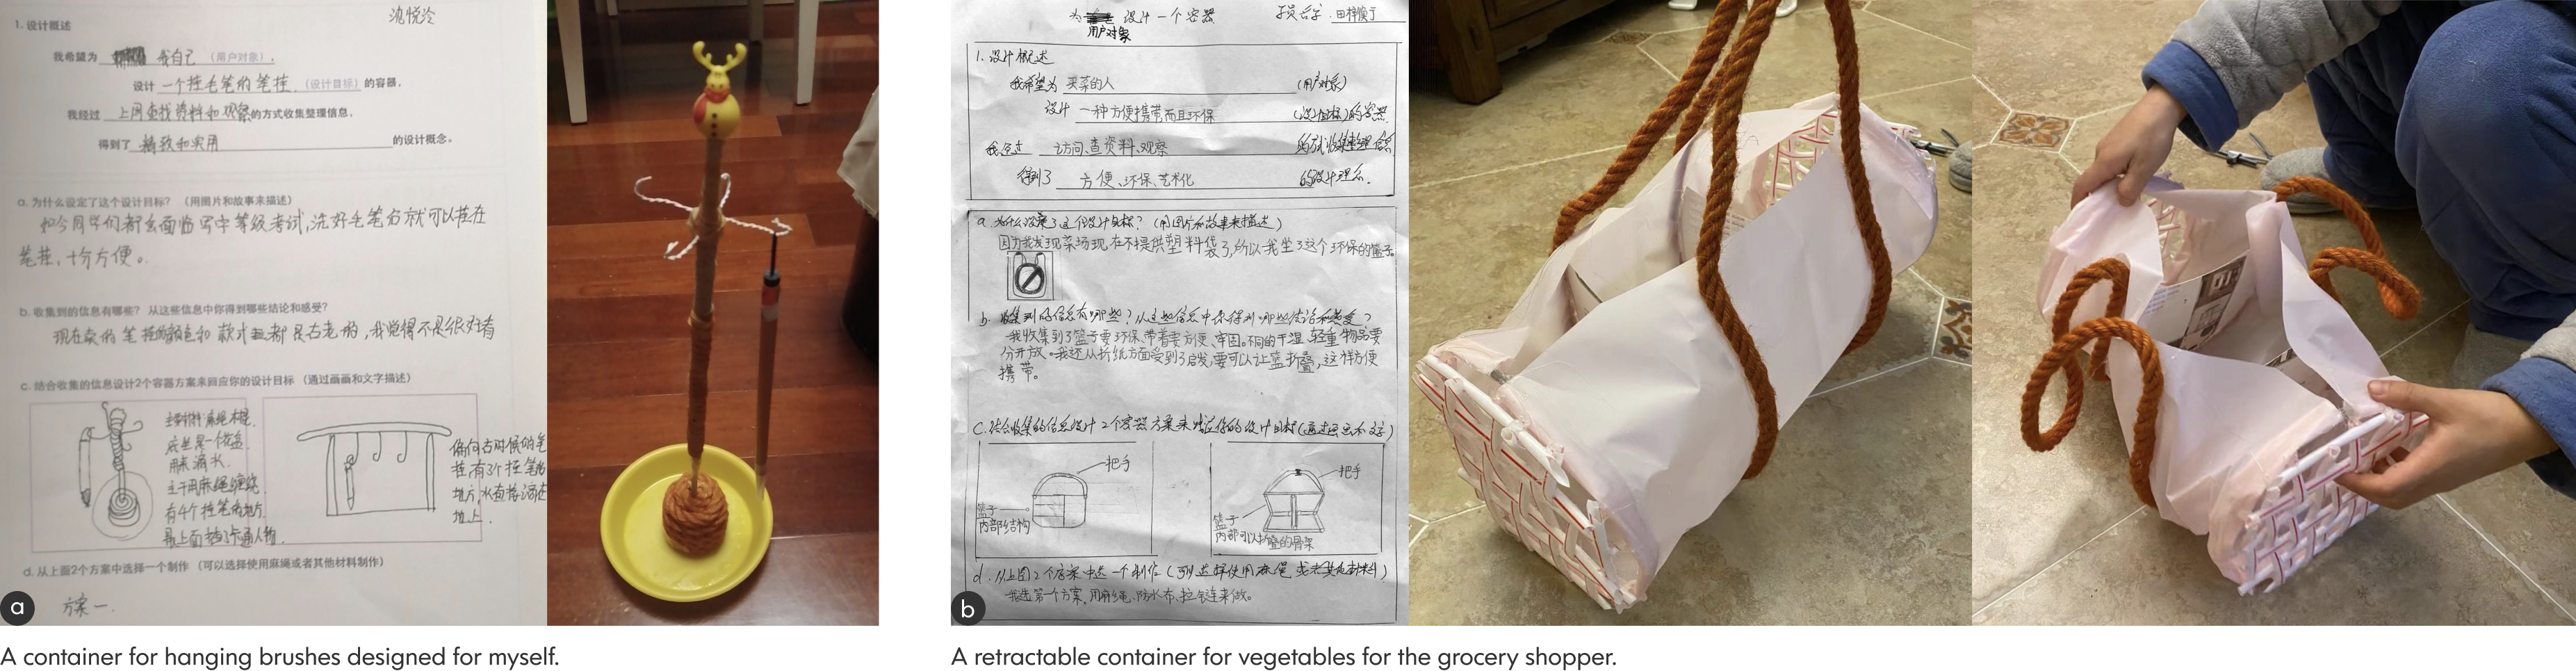 沈悦泠
1. 设计概述
我希望为 我自己 （用户对象），
设计 一个挂毛笔的笔挂 （设计目标） 的容器，
我经过 上网查找资料和观察的方式收集整理信息，
得到了 精致和实用 的设计概念。
a. 为什么设定了这个设计目标？ （用图片和故事来描述）
如今同学们都会面临写字等级考试，洗好毛笔后就可以挂在
笔挂，十分方便。
b. 收集到的信息有哪些？ 从这些信息中你得到哪些结论和感受？
现在卖的笔挂的颜色和款式都是古老的，我觉得不是很好看
c. 结合收集的信息设计2个容器方案来回应你的设计目标 （通过画画和文字描述）
主要材料麻绳木棍，
底坐是一个花盆，
用来滴水。
主干用麻绳缠绕，
有4个挂笔的地方，
最上面挂了卡通人物。
偏向古时候的笔
挂有3个挂笔的
地方，水直接滴在
地上。
d. 从上面2个方案中选择一个制作 （可以选择使用麻绳或者其他材料制作）
方案一.
a
为 设计一个容器
用户对象
1. 设计概述
我希望为 买菜的人 （用户对象）
设计 一种方便携带而且环保 （设计目标）的容器.
我经过 访问、查资料、观察 的方式收集整理信息
得到了 方便、环保、艺术化 的设计理念.
a. 为什么设定了这个设计目标？ （用图片和故事来描述）
因为我发现菜场现在不提供塑料袋了，所以我坐了这个环保的篮子。
b. 收集到的信息有哪些？从这些信息中你得到哪些结论和感受？
我收集到了篮子要环保、带着要方便、牢固。不同的干湿、轻重物品要
分开放。我还从折纸方面受到了启发，要可以让篮折叠，这样方便
携带。
c. 结合收集的信息设计2个容器方案来回应你的设计目标（通过画画和文字）
把手
篮子
内部结构
把手
篮子
内部可以折叠的骨架
d. 从上面2个方案中选一个制作（可以选择使用麻绳或者其他材料）
我选第一个方案，用麻绳、防水布、拉链来做。
b
A container for hanging brushes designed for myself.
A retractable container for vegetables for the grocery shopper.